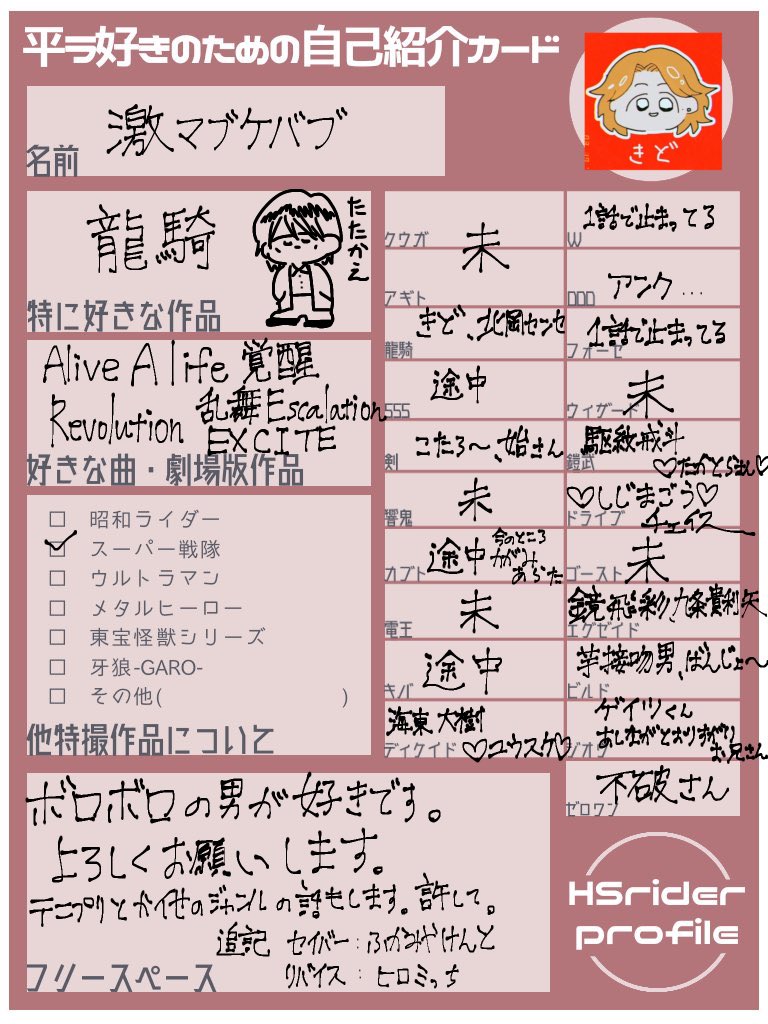 平ラ好きのための自己紹介カード
激マブケバブ
名前
きど
龍騎
たたかえ
特に好きな作品
Alive A life 覚醒
Revolution 乱舞Escalation
EXCITE
好きな曲・劇場版作品
昭和ライダー
スーパー戦隊
ウルトラマン
メタルヒーロー
東宝怪獣シリーズ
牙狼-GARO-
その他( )
他特撮作品について
クウガ
未
アギト
きど、北岡センセ
龍騎
途中
555
こたろ〜、始さん
剣
未
響鬼
途中 今のところ
かがみ
あらた
カブト
未
電王
途中
キバ
海東大樹
ディケイド ♡ユウスケ♡
1話で止まってる
W
アンク…
OOO
1話で止まってる
フォーゼ
未
ウィザード
駆紋戒斗
鎧武 ♡たかとらさん♡
♡しじまごう♡
ドライブ チェイス
未
ゴースト
鏡飛彩、九条貴利矢
エグゼイド
芋接吻男、ばんじょ〜
ビルド
ゲイツくん
あしながとおりすがり
お兄さん
ジオウ
不破さん
ゼロワン
ボロボロの男が好きです。
よろしくお願いします。
テニプリとか他のジャンルの話もします。許して。
追記 セイバー：ふかみやけんと
リバイス：ヒロミっち
フリースペース
HSrider
profile